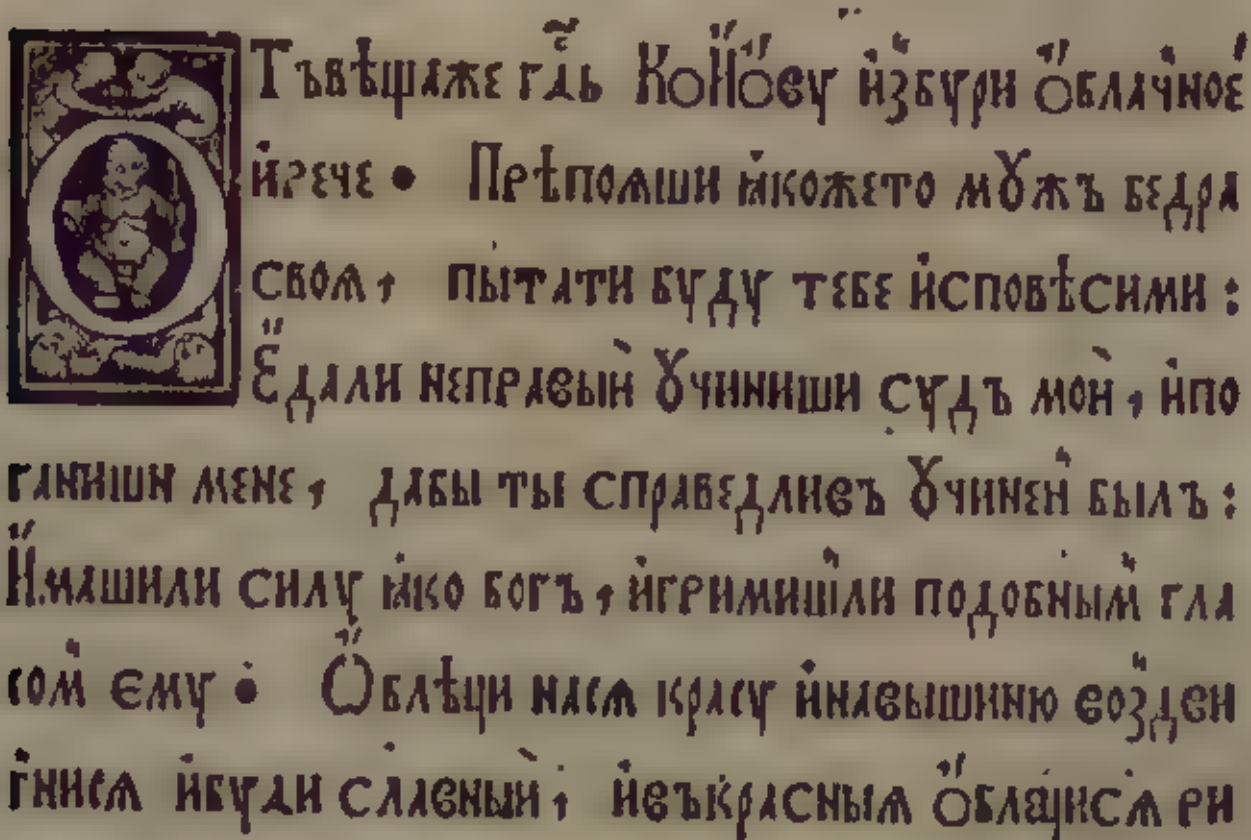 ОТъвѣщаже гд҃ь Коӥӧву и҆збури ӧблачное
и҆рече • Прѣпоꙗши ꙗ҆кожето мꙋжъ бедра
своѧ, пытати буду тебе и҆сповѣсими :
Едали неправый ꙋчиниши судъ мой, и҆по
ганиши мене, дабы ты справедливъ ꙋчинен был̾ъ :
И҆машили силу ꙗ҆ко богъ, и҆гримишили подобным гла
сом ему • Ӧблѣци насѧ красу и҆навышиню воздви
гнисѧ и҆буди славный, и҆въкрасныѧ ӧблецисѧ ри